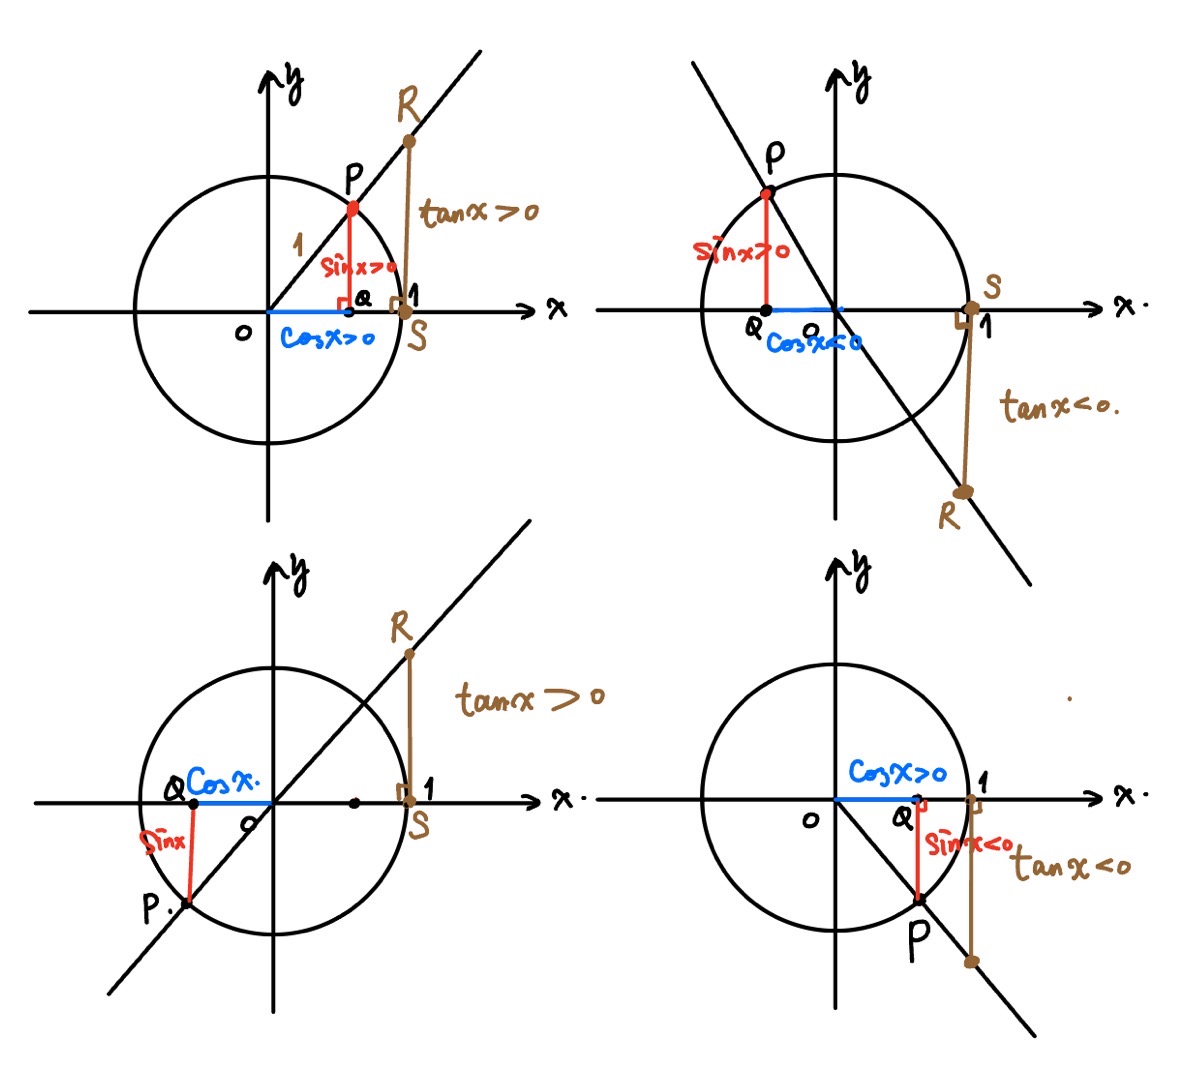 y
R
P
tanx>0
1
sinx>0
Q
1
x
O
cosx>0
S
y
P
sinx>0
S
x.
Q
O
1
cosx<0
tanx<0.
R
y
R
tanx>0
Q
cosx.
1
x.
O
S
sinx
P.
y
cosx>0
1
x.
O
Q
sinx<0
tanx<0
P